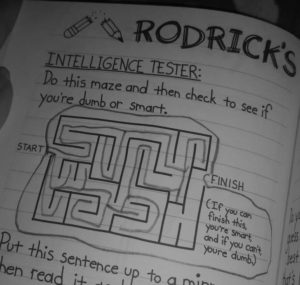 RODRICK'S
INTELLIGENCE TESTER:
Do this maze and then check to see if
you're dumb or smart.
START
FINISH
(If you can
finish this,
you're smart,
and if you can't
you're dumb.)
Put this sentence up to a
then read it